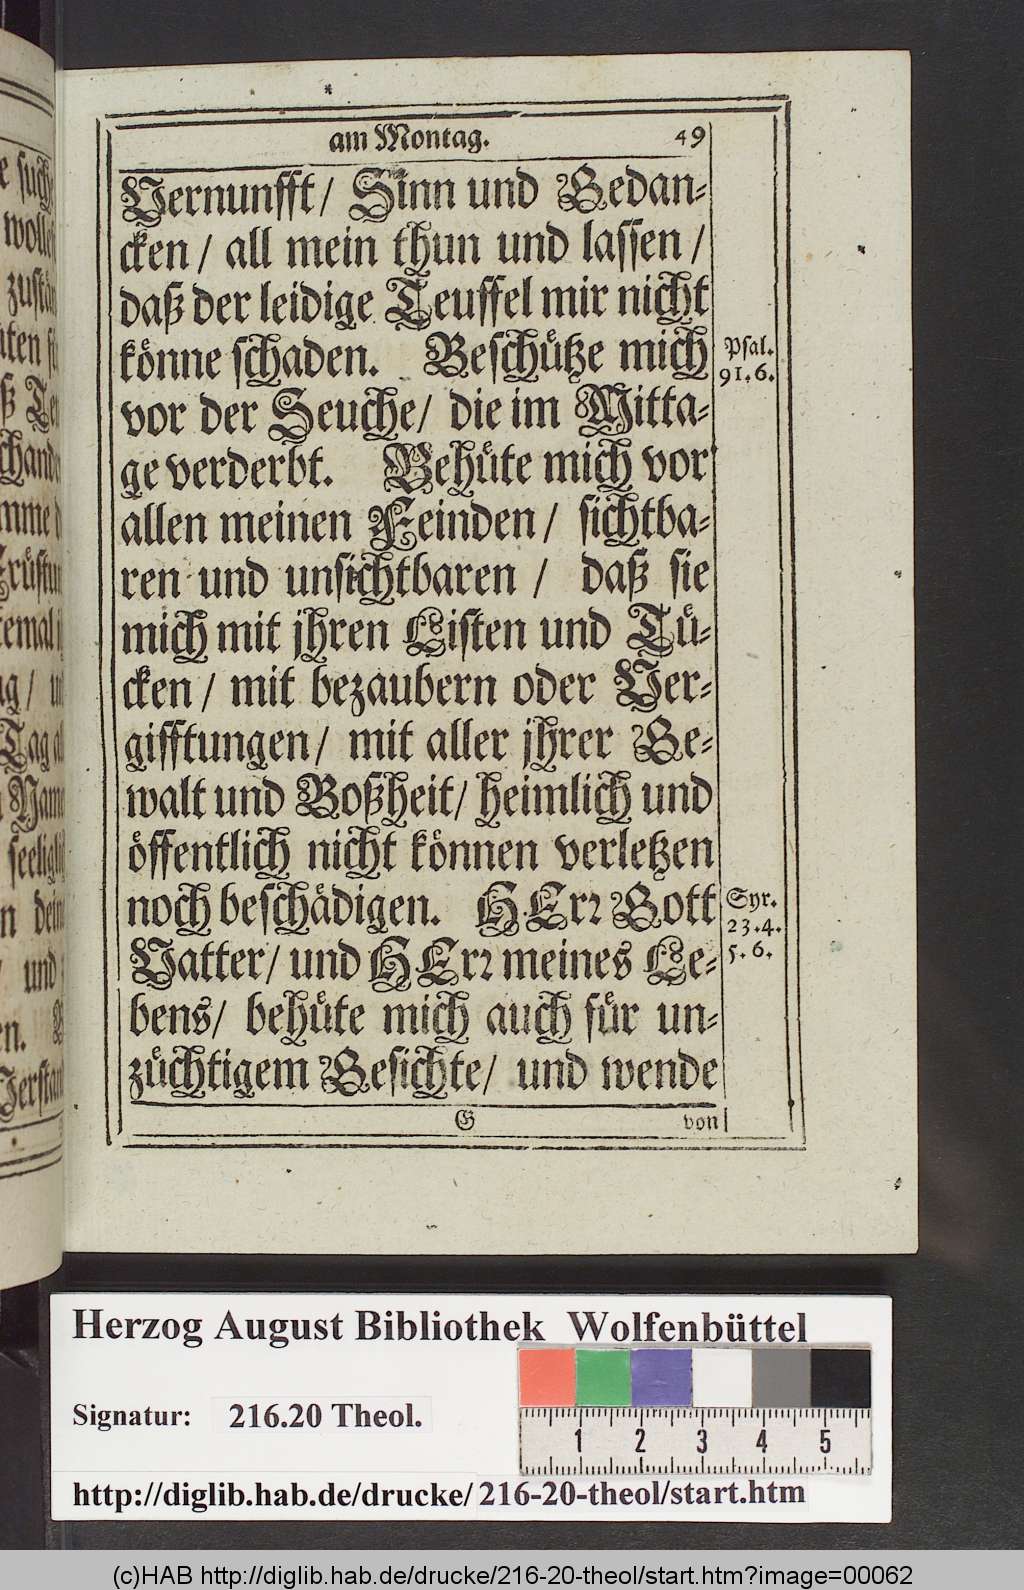 am Montag. 49
Vernunfft/ Sinn und Gedan-
cken/ all mein thun und lassen/
daß der leidige Teuffel mir nicht
könne schaden. Beschütze mich
Psal.
91.6.
vor der Seuche/ die im Mitta-
ge verderbt. Behüte mich vor
allen meinen Feinden/ sichtba-
ren und unsichtbaren/ daß sie
mich mit jhren Listen und Tü-
cken/ mit bezaubern oder Ver-
gifftungen/ mit aller jhrer Ge-
walt und Boßheit/ heimlich und
öffentlich nicht können verletzen
noch beschädigen. HErr Gott
Syr.
23.4.
5.6.
Vatter/ und HErr meines Le-
bens/ behüte mich auch für un-
züchtigem Gesichte/ und wende
G von
Herzog August Bibliothek Wolfenbüttel
Signatur: 216.20 Theol.
1 2 3 4 5
http://diglib.hab.de/drucke/216-20-theol/start.htm
(c)HAB http://diglib.hab.de/drucke/216-20-theol/start.htm?image=00062